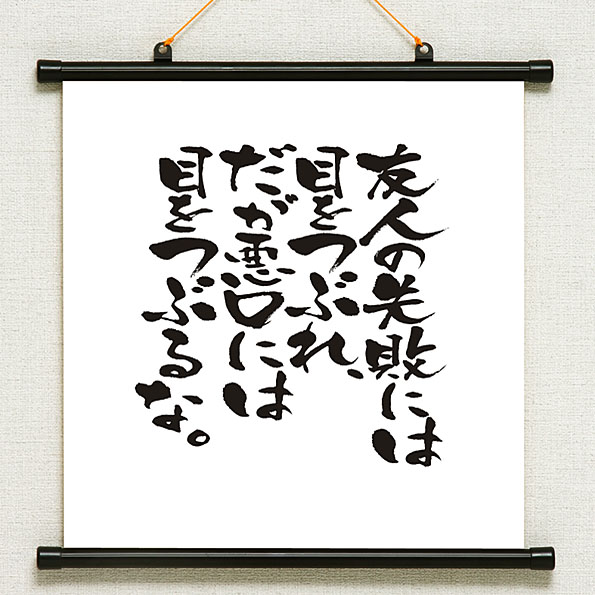 友人の失敗には
目をつぶれ、
だが悪口には
目をつぶるな。